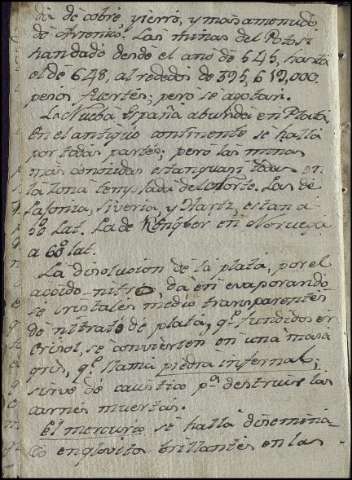 da de cobre, yierro, y mas amonudo
de Arsenico. Las minas del Potosi
han dado desde el año de 545, hasta
el de 648, alrededor de 395,619,000
pesos fuertes; pero se agotan.
La Nueba España abunda en Plata.
En el antiguo continente se halla
por todas partes; pero las minas
mas conocidas estan casi todas en
la Zona templada del Norte. Las de
Sajonia, Siveria, y Hartz, estan a
Lat. La de Köngber en Noruega
a 60 lat.
La disolucion de la plata, por el
acido nitro, dà en evaporando
se cristales medio transparentes
de nitrato de plata, q.e fundidos en
Crisol, se convierten en una masa
gris, q.e llama piedra infernal;
sirve de caustico p.a destruir las
carnes muertas.
El mercurio se halla disemina
do englovitos brillantes en las